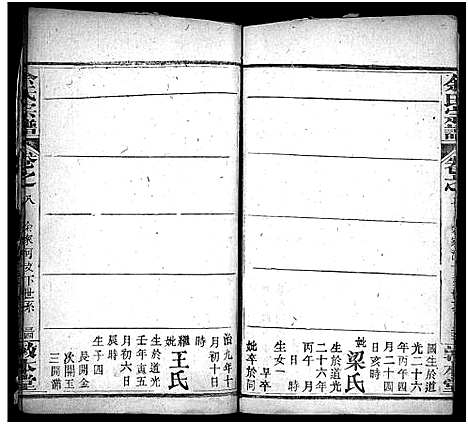 余氏宗譜
卷之
國生於道
光二十六
年丙午四
月二十四
日亥時
妣梁氏
生於道光
二十六年
丙午
月
生女一
早卒
妣卒於同
治九年十
月初十日
時
繼妣王氏
生於道光
壬年寅五
月初六日
辰時
生子四
長開金
次開玉
三開滿
余氏宗譜
卷之
八
余家河汊下世系
敬本堂